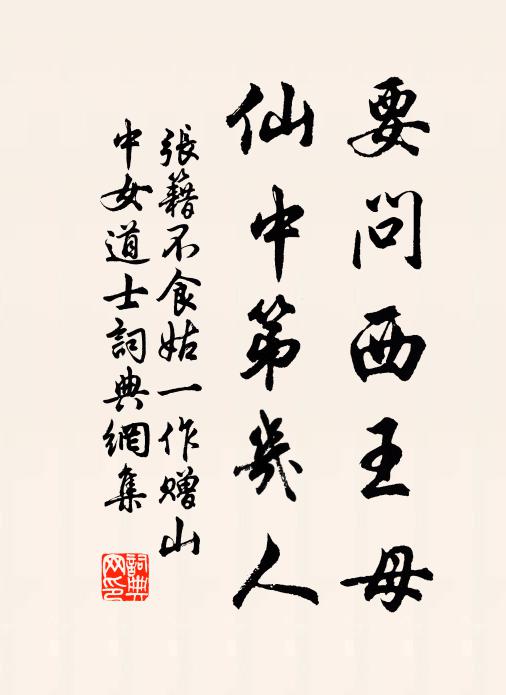 要問西王母
仙中第幾人
張籍不食姑一作贈山
中女道士詞典網集
詞典網印